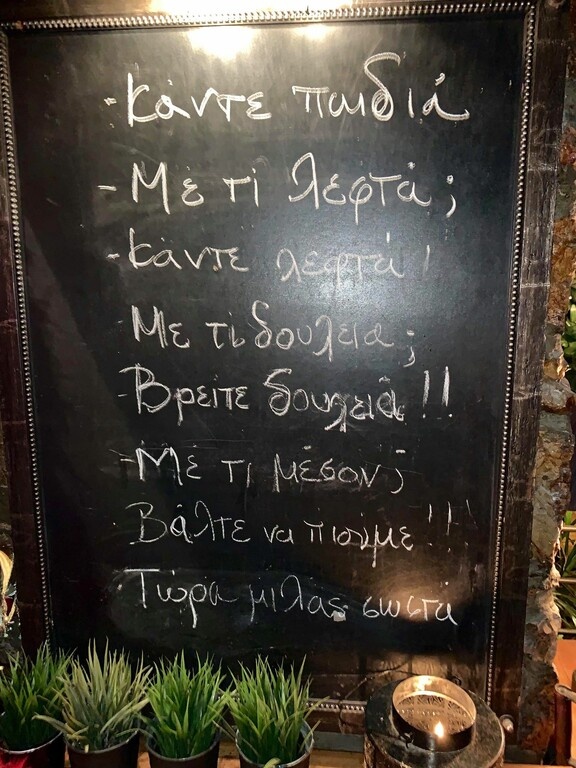 - Κάντε παιδιά
- Με τι λεφτά;
- Κάντε λεφτά!
- Με τι δουλειά;
- Βρείτε δουλειά!!
- Με τι μέσον;
- Βάλτε να πιούμε!!!
- Τώρα μιλας σωστά